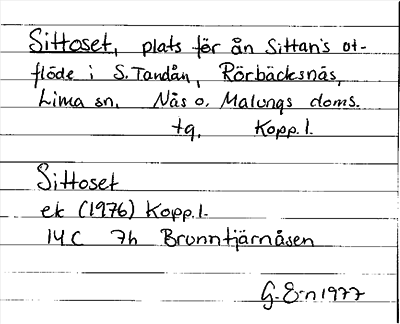 Sittoset, plats för ån Sittan's ut-
flöde i S. Tandån, Rörbäcksnäs,
Lima sn. Nås o. Malungs doms.
tg. Kopp. l.
Sittoset
ek (1976) Kopp. l.
14 C 7h Brunntjärnåsen
G. E-n 1977